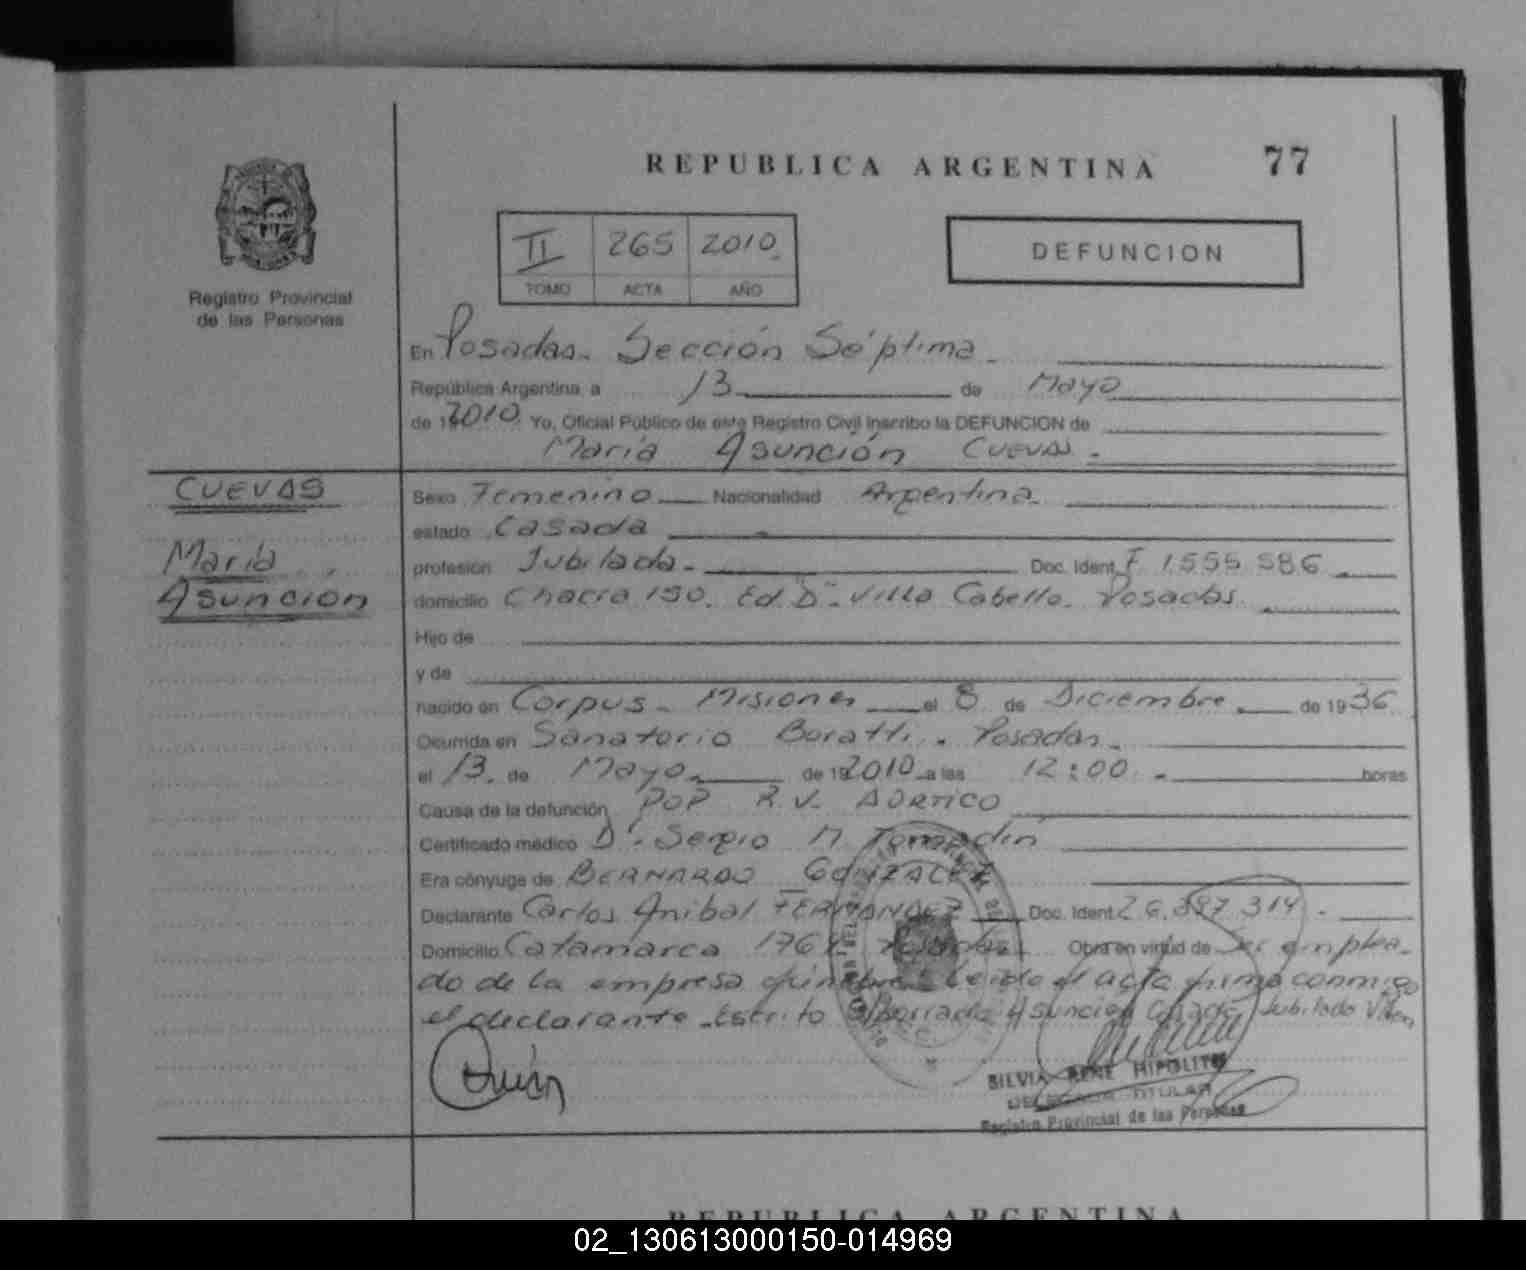 REPUBLICA ARGENTINA 77
Registro Provincial
de las Personas
II 265 2010
TOMO ACTA AÑO
DEFUNCION
En Posadas. Sección Séptima
República Argentina, a 13 de Mayo
de 2010 Yo, Oficial Público de este Registro Civil inscribo la DEFUNCION de
María Asunción Cuevas.
CUEVAS
María
Asunción
Sexo Femenino Nacionalidad Argentina
estado Casada
profesión Jubilada. Doc. Ident. F 1.555.586
domicilio Chacra 150. Ed. D. Villa Cabello. Posadas.
Hijo de
y de
nacido en Corpus. Misiones el 8 de Diciembre de 1936
Ocurrida en Sanatorio Boratti. Posadas.
el 13. de Mayo. de 2010 a las 12:00. horas
Causa de la defunción POP R.V. AORTICO
Certificado médico Dr. Sergio M. Tomadin
Era cónyuge de BERNARDO GONZALEZ
Declarante Carlos Anibal FERNANDEZ Doc. Ident. 26.397.314.
Domicilio Catamarca Posadas Obra en virtud de Ser emplea-
do de la empresa fúnebre. Leido el acta firma conmigo
el declarante. Escrito S/borrado Asunción Casada Jubilado Valen
SILVIA RENE HIPOLITO
DELEGADA TITULAR
Registro Provincial de las Personas
REPUBLICA ARGENTINA
02_130613000150-014969